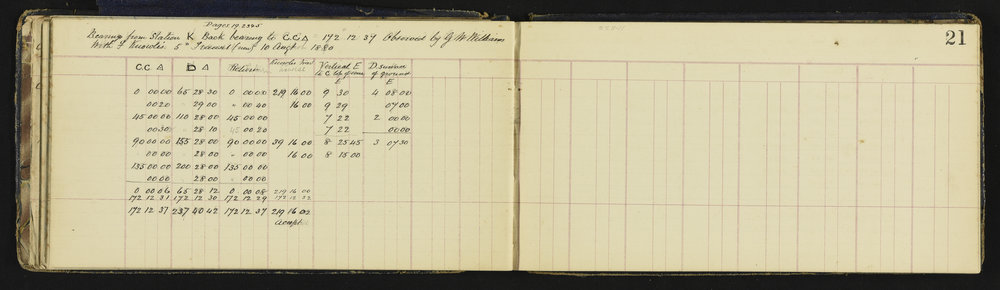 Pages 19 2345
21
Bearing from Station K Back bearing to C.C △ 172 12 37 Observed by G W Williams
With F Knowles 5" Transit (new) 10 August 1880
C.C △ D △ Return Knowles Vertical E D. summit
to C top of of ground
E E
0 00 00 65 28 30 0 00 00 219 16 00 9 30 4 08 00
00 20 29 00 " 00 40 16 00 9 29 07 00
45 00 00 110 28 00 45 00 00 7 22 2 00 00
00 30 28 10 45 00 20 7 22 00 00
90 00 00 155 28 00 90 00 00 39 16 00 8 25 45 3 07 30
00 00 28 00 " 00 00 16 00 8 15 00
135 00 00 200 28 00 135 00 00
00 00 28 00 " 00 00
0 00 06 65 28 12 0 00 08 219 16 00
172 12 31 172 12 30 172 12 29 172 12 22
172 12 37 237 40 42 172 12 37 219 16 02